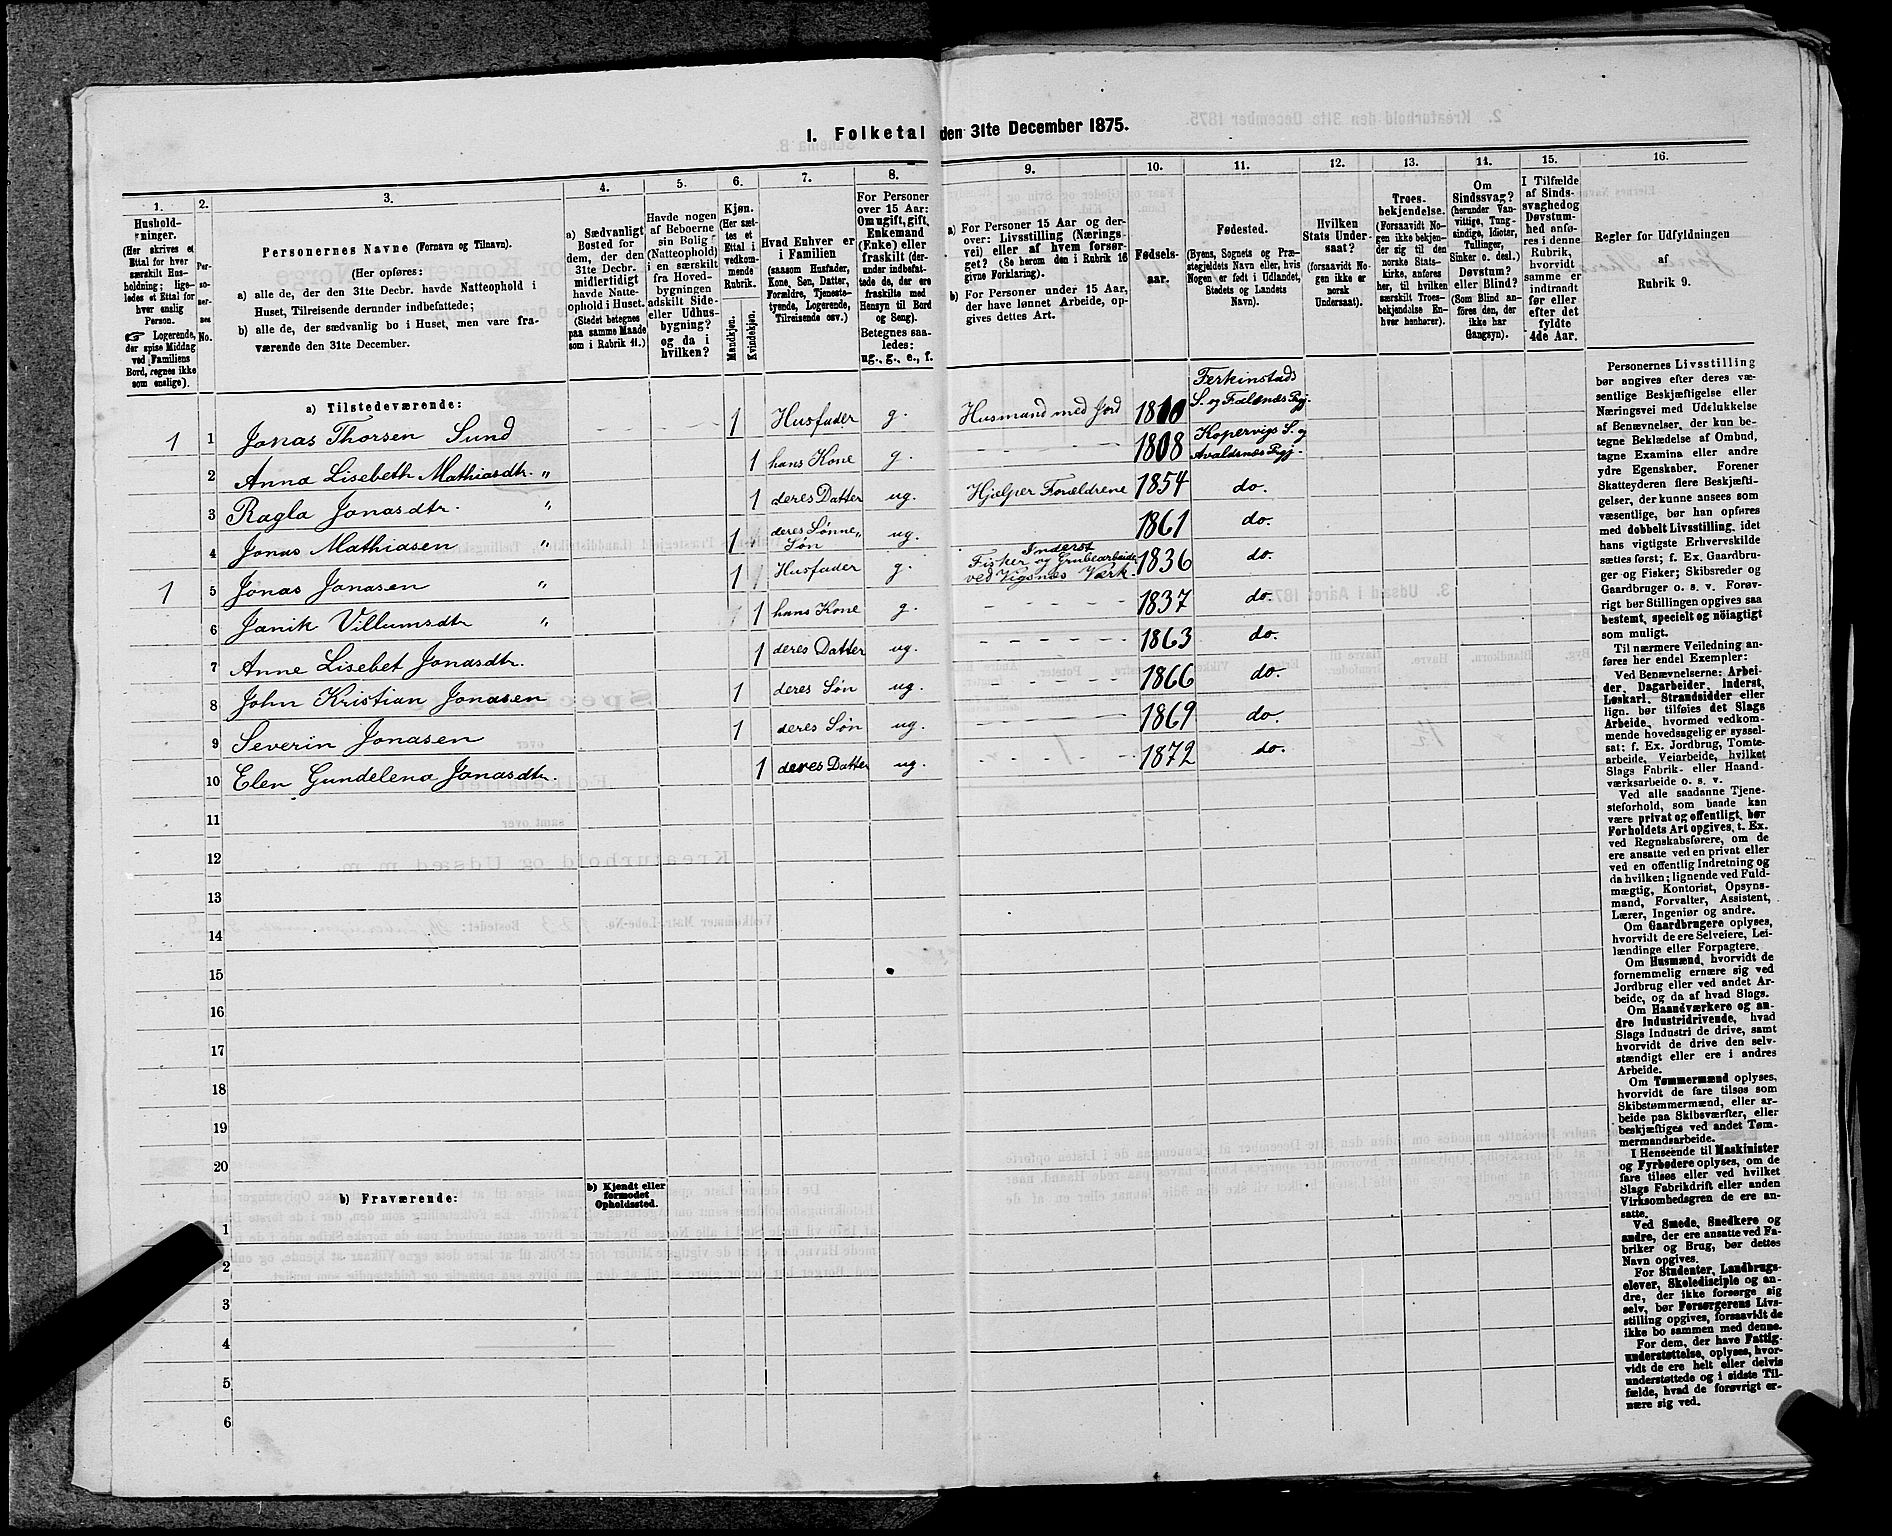 I. Folketal den 31te December 1875.
1.
Hushold-
ninger.
(Her skrives et
Ettal for hver
særskilt Hus-
holdning; lige-
ledes et Ettal for
hver enslig
Person.
Logerende,
der spise Middag
ved Familiens
Bord, regnes ikke
som enslige).
2.
Per-
soner-
nes
No.
3.
Personernes Navne (Fornavn og Tilnavn).
(Her opføres:
a) alle de, der den 31te Decbr. havde Natteophold i
Huset, Tilreisende derunder indbefattede;
b) alle de, der sædvanlig bo i Huset, men vare fra-
værende den 31te December.
4.
a) Sædvanligt
Bosted for
dem, der den
31te Decbr.
midlertidigt
havde Natte-
ophold i Huset.
(Stedet betegnes
paa samme Maade
som i Rubrik 11.)
5.
Havde nogen
af Beboerne
sin Bolig
(Natteophold)
i en særskilt
fra Hoved-
bygningen
adskilt Side-
eller Udhus-
bygning?
og da i
hvilken?
6.
Kjøn.
(Her sæt-
tes et
Ettal i
vedkom-
mende
Rubrik.
Mandkjøn.
Kvindekjøn.
7.
Hvad Enhver er
i Familien
(saasom Husfader,
Kone, Søn, Datter,
Forældre, Tjeneste-
tyende, Logerende,
Tilreisende osv.)
8.
For Personer
over 15 Aar:
Om ugift, gift,
Enkemand
(Enke) eller
fraskilt (der-
under indbefat-
tede de, der ere
fraskilte med
Hensyn til Bord
og Seng).
Betegnes saa-
ledes:
ug., g., e., f.
9.
a) For Personer 15 Aar og der-
over: Livsstilling (Nærings-
vei) eller af hvem forsør-
get? (Se herom den i Rubrik 16
givne Forklaring).
b) For Personer under 15 Aar,
der have lønnet Arbeide, op-
gives dettes Art.
10.
Fødsels-
aar.
11.
Fødested.
(Byens, Sognets og Præ-
stegjeldets Navn eller, hvis
Nogen er født i Udlandet,
Stedets og Landets
Navn).
12.
Hvilken
Stats Under-
saat?
(forsaavidt No-
gen ikke er
norsk
Undersaat).
13.
Troes-
bekjendelse.
(Forsaavidt No-
gen ikke bekjen-
der sig til den
norske Stats-
kirke, anføres
her, til hvilken
særskilt Troes-
bekjendelse En-
hver henhører).
14.
Om
Sindssvag?
(herunder Van-
vittige, Tung-
sindige, Idioter,
Tullinger,
Sinker o. desl.)
Døvstum?
eller Blind?
(Som Blind an-
føres den, der
ikke har
Gangsyn).
15.
I Tilfælde
af Sinds-
svaghed og
Døvstum-
hed anfø-
res i denne
Rubrik,
hvorvidt
samme er
indtraadt
før eller
efter det
fyldte
4de Aar.
16.
Regler for Udfyldningen
af
Rubrik 9.
a) Tilstedeværende:
1 1 Jonas Thorsen Sund 1 Husfader g. Husmand med Jord 1810 Ferkinstads S. og
2 Anna Lisebeth Mathiasdtr. " 1 hans Kone g. 1808 Kopervigs S. og Avaldsnæs Pgj.
3 Ragla Jonasdtr. " 1 deres Datter ug. Hjelper Forældrene 1854 do.
4 Jonas Mathiasen " 1 deres Sønne-Søn ug. 1861 do.
1 5 Jonas Jonasen " 1 Husfader g. Inderst Fisker og Grubearbeider ved Vigsnæs Værk. 1836 do.
6 Janik Villumsdtr " 1 hans Kone g. 1837 do.
7 Anne Lisebet Jonasdtr. 1 deres Datter ug. 1863 do.
8 John Kristian Jonasen 1 deres Søn ug. 1866 do.
9 Severin Jonasen 1 deres Søn ug. 1869 do.
10 Elen Gundelena Jonasdtr. 1 deres Datter ug. 1872 do.
11
12
13
14
15
16
17
18
19
20
b) Fraværende:
b) Kjendt eller
formodet
Opholdssted.
1
2
3
4
5
6
Personernes Livsstilling
bør angives efter deres væ-
sentlige Beskjæftigelse eller
Næringsvei med Udelukkelse
af Benævnelser, der kun be-
tegne Beklædelse af Ombud,
tagne Examina eller andre
ydre Egenskaber. Forener
Skatteyderen flere Beskjæfti-
gelser, der kunne ansees som
væsentlige, bør han opføres
med dobbelt Livsstilling, idet
hans vigtigste Erhvervskilde
sættes først; f. Ex. Gaardbru-
ger og Fisker; Skibsreder og
Gaardbruger o. s. v. Forøv-
rigt bør Stillingen opgives saa
bestemt, specielt og nöiagtigt
som muligt.
Til nærmere Veiledning an-
føres her endel Exempler:
Ved Benævnelserne: Arbei-
der, Dagarbeider, Inderst,
Løskarl, Strandsidder eller
lign. bør tilføies det Slags
Arbeide, hvormed vedkom-
mende hovedsagelig er syssel-
sat; f. Ex. Jordbrug, Tomte-
arbeide, Veiarbeide, hvilket
Slags Fabrik- eller Haand-
værksarbeide o. s. v.
Ved alle saadanne Tjene-
steforhold, som baade kan
være privat og offentligt, bør
Forholdets Art opgives, t. Ex.
ved Regnskabsførere, om de
ere ansatte ved en privat eller
ved en offentlig Indretning og
da hvilken; lignende ved Fuld-
mægtig, Kontorist, Opsyns-
mand, Forvalter, Assistent,
Lærer, Ingeniør og andre.
Om Gaardbrugere oplyses,
hvorvidt de ere Selveiere, Lei-
lændinge eller Forpagtere.
Om Husmænd, hvorvidt de
fornemmelig ernære sig ved
Jordbrug eller ved andet Ar-
beide, og da af hvad Slags.
Om Haandværkere og an-
dre Industridrivende, hvad
Slags Industri de drive, samt
hvorvidt de drive den selv-
stændigt eller ere i andres
Arbeide.
Om Tømmermænd oplyses,
hvorvidt de fare tilsøs som
Skibstømmermænd, eller ar-
beide paa Skibsværfter, eller
beskjæftiges ved andet Tøm-
mermandsarbeide.
I Henseende til Maskinister
og Fyrbødere oplyses, om de
fare tilsøs eller ved hvilket
Slags Fabrikdrift eller anden
Virksomhedsgren de ere an-
satte.
Ved Smede, Snedkere og
andre, der ere ansatte ved Fa-
briker og Brug, bør dettes
Navn opgives.
For Studenter, Landbrugs-
elever, Skoledisciple og an-
dre, der ikke forsørge sig
selv, bør Forsørgerens Livs-
stilling opgives, forsaavidt de
ikke bo sammen med denne.
For dem, der have Fattig-
understøttelse, oplyses, hvor-
vidt de ere helt eller delvis
understøttede og i sidste Til-
fælde, hvad de forøvrigt er-
nære sig ved.